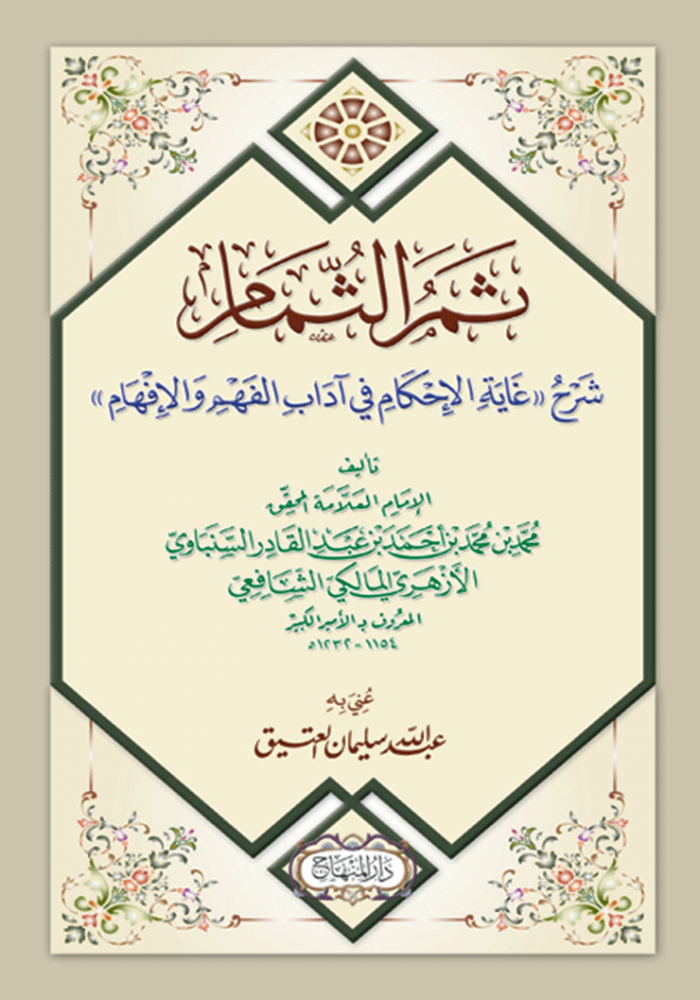 ثَمَرُ الثُّمَامِ
شَرْحُ «غَايَةِ الإِحْكَامِ فِي آدَابِ الفَهْمِ وَالإِفْهَامِ»
تأليف
الإمَامِ العَلَّامَةِ المحقِّق
مُحَمَّد بْن مُحَمَّد بْن أَحْمَد بْن عَبْد القَادِر السَّنْبَاوِيّ
الأَزْهَرِيّ المَالِكيّ الشَّافِعِيّ
المعْرُوف بـ الأَمير الكَبير
١١٥٤ - ١٢٣٢ه
عُنِيَ بِهِ
عبد اللّٰه سليمان العتيق
دَارُ المِنْهَاج